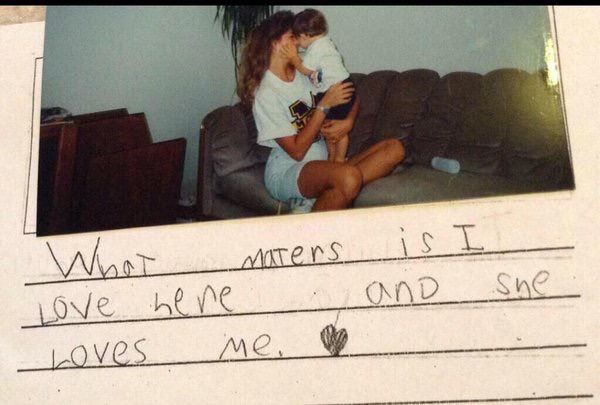 What maters is I
love here and she
loves me.